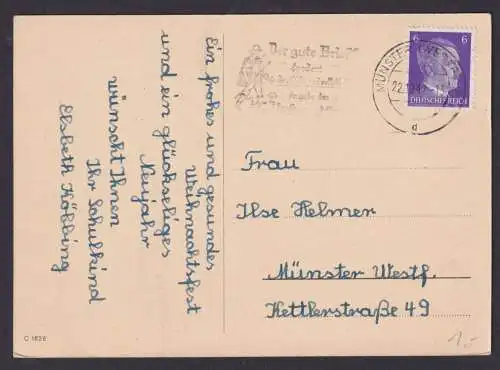 Ein frohes und gesundes
Weihnachtsfest
und ein glückseliges
Neujahr
wünscht Ihnen
Ihr Schulkind
Elsbeth Kölbing
C 1626
Der gute Brief
MÜNSTER (WESTF
22.12.
d
6 6
DEUTSCHES REICH
Frau
Ilse Helmer
Münster Westf.
Kettlerstraße 49
1,-